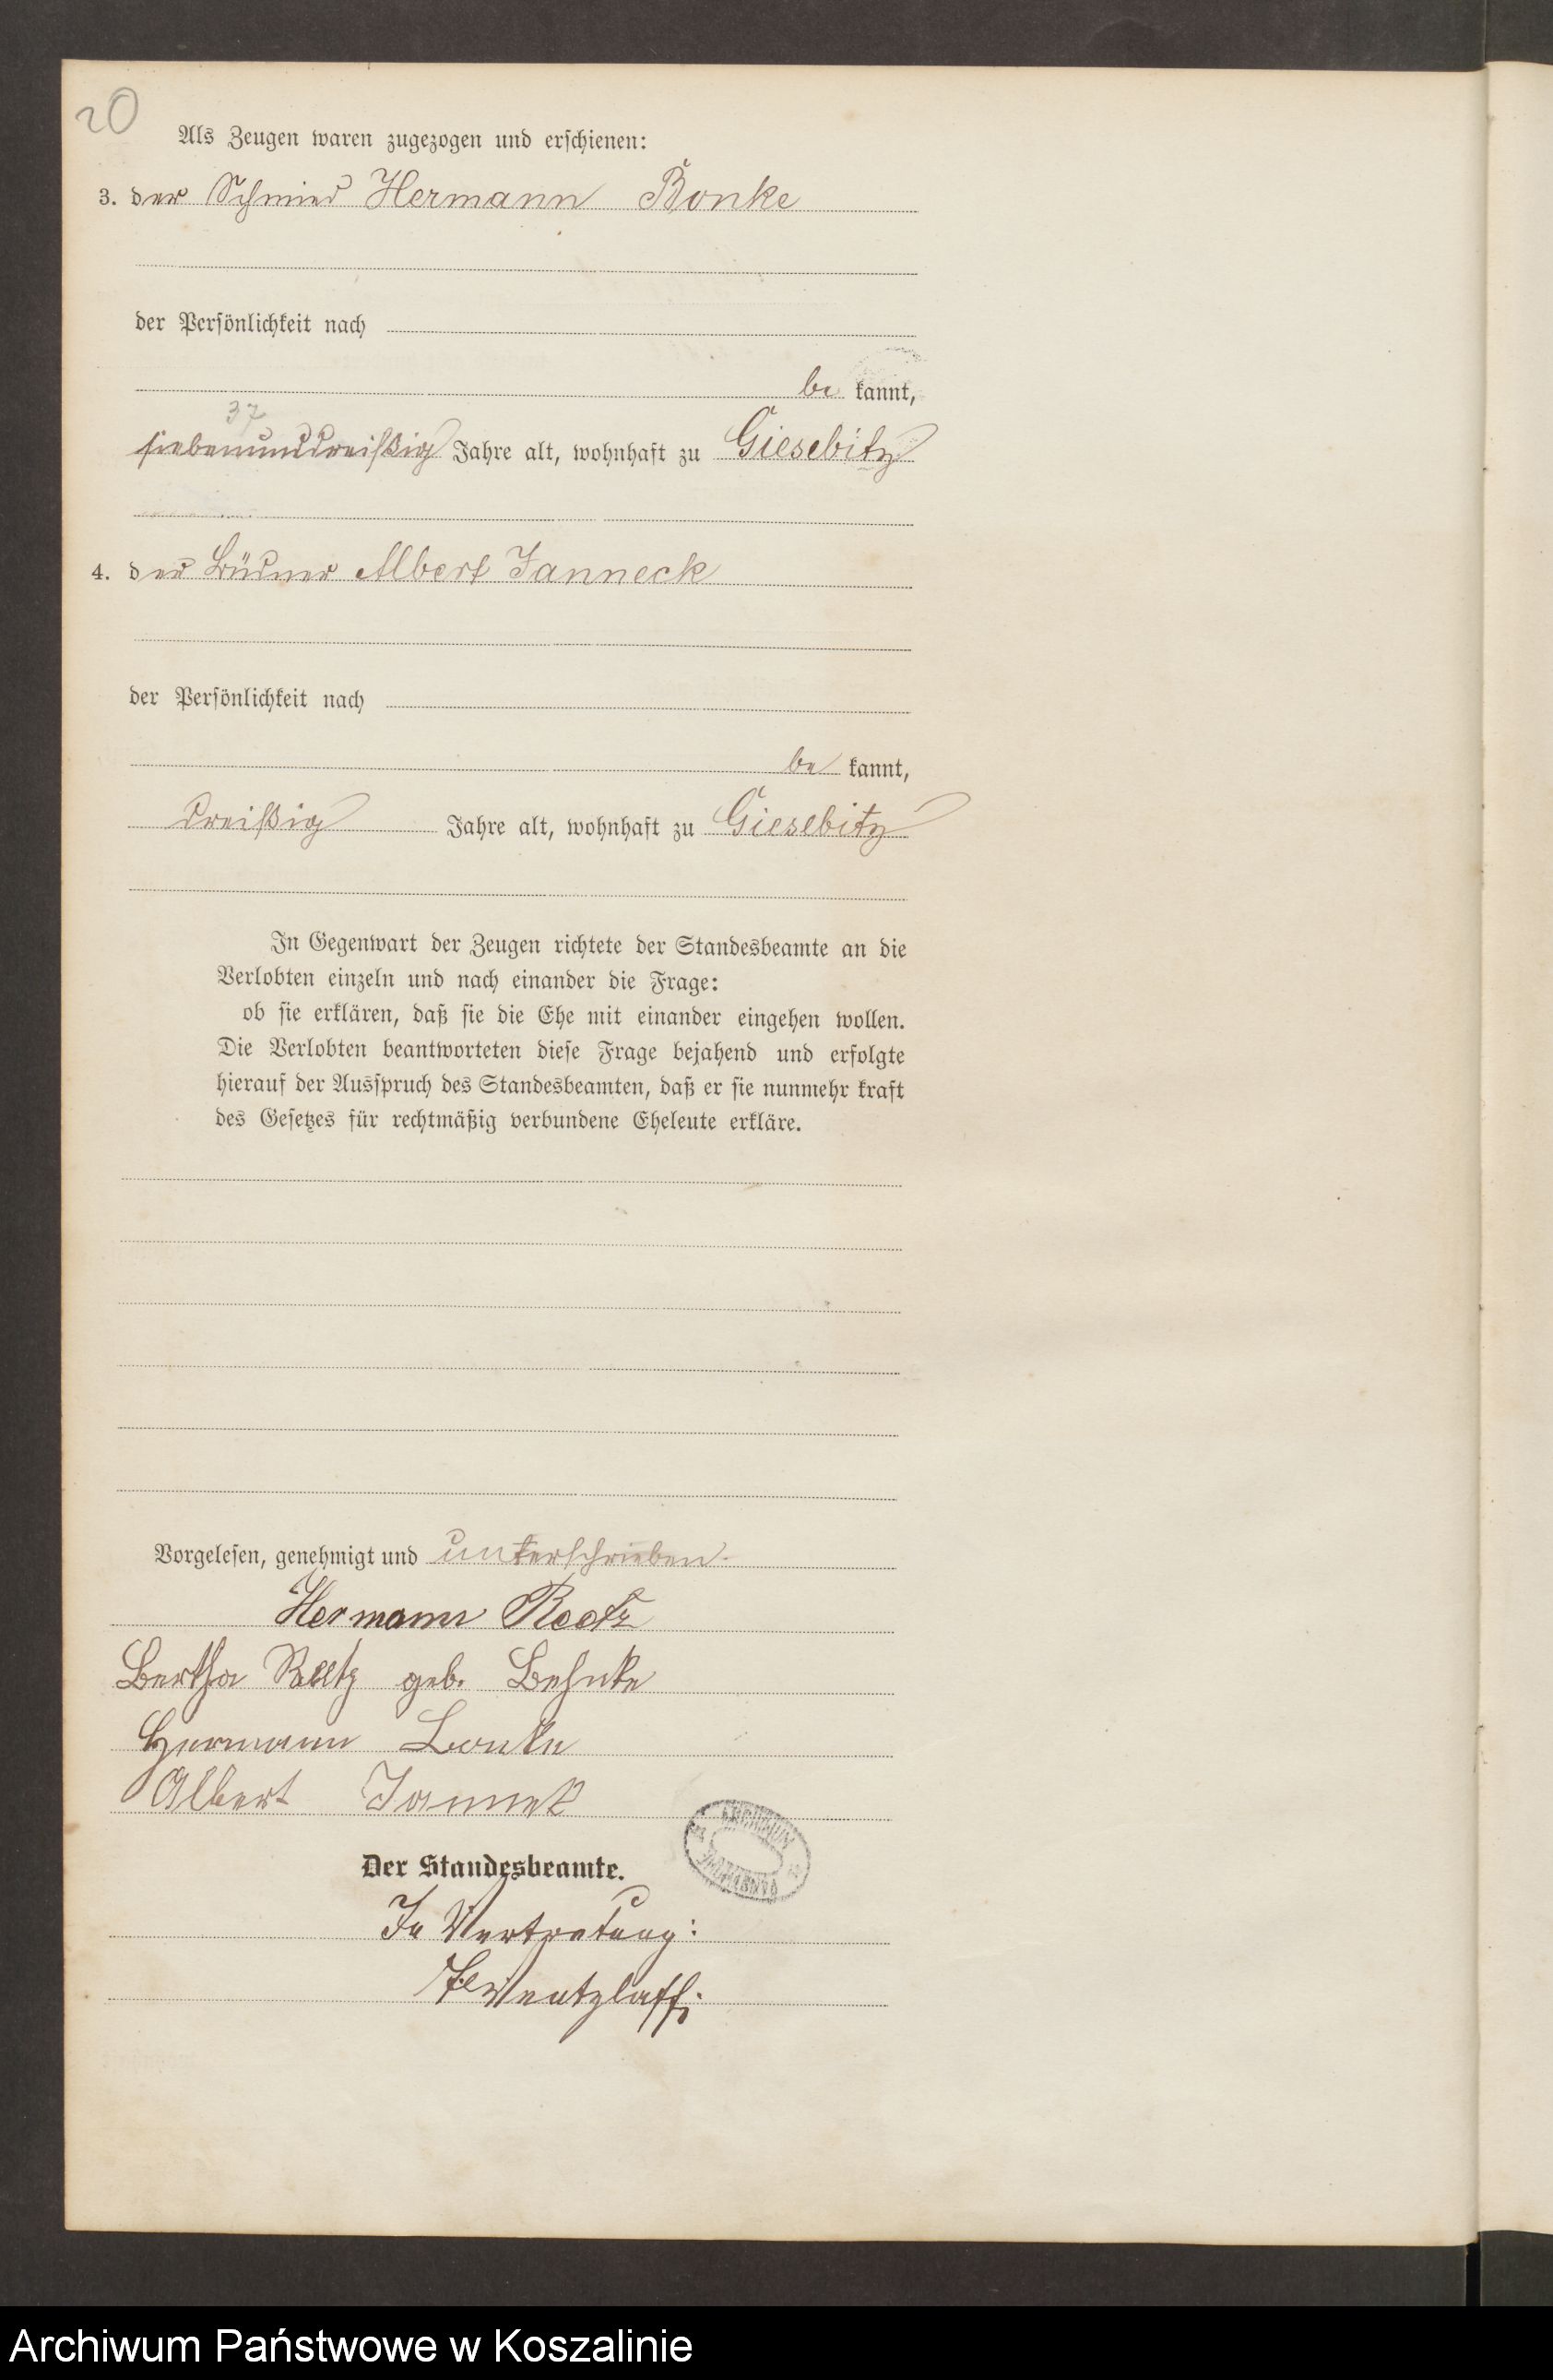 20
Als Zeugen waren zugezogen und erschienen:
3. der Schmied Hermann Bonke
der Persönlichkeit nach
be kannt,
37
siebenunddreißig Jahre alt, wohnhaft zu Giesebitz
4. der Büdner Albert Janneck
der Persönlichkeit nach
be kannt,
dreißig Jahre alt, wohnhaft zu Giesebitz
In Gegenwart der Zeugen richtete der Standesbeamte an die
Verlobten einzeln und nach einander die Frage:
ob sie erklären, daß sie die Ehe mit einander eingehen wollen.
Die Verlobten beantworteten diese Frage bejahend und erfolgte
hierauf der Ausspruch des Standesbeamten, daß er sie nunmehr kraft
des Gesetzes für rechtmäßig verbundene Eheleute erkläre.
Vorgelesen, genehmigt und unterschrieben.
Hermann Reetz
Bertha Reetz geb. Behnke
Hermann Bonke
Albert Jannek
Der Standesbeamte.
In Vertretung:
Wentzlaff.
Archiwum Państwowe w Koszalinie